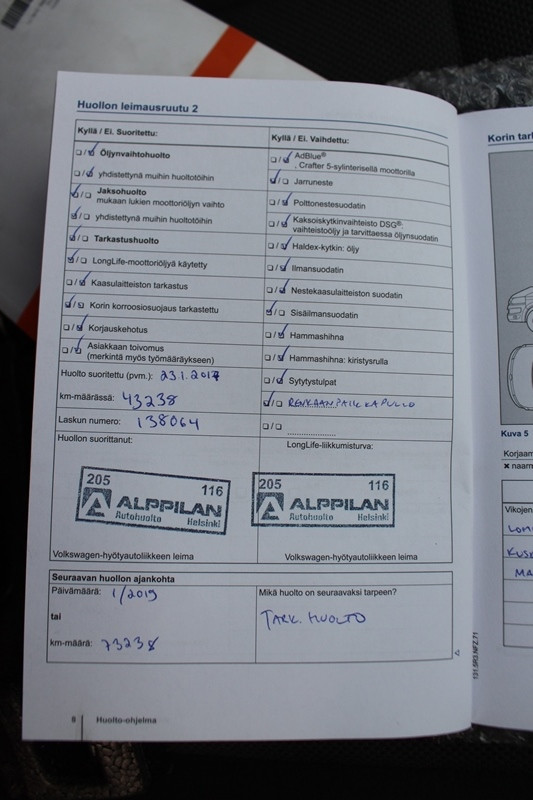 Huollon leimausruutu 2
Kyllä / Ei. Suoritettu:
Öljynvaihtohuolto
yhdistettynä muihin huoltotöihin
Jaksohuolto
mukaan lukien moottoriöljyn vaihto
yhdistettynä muihin huoltotöihin
Tarkastushuolto
LongLife-moottoriöljyä käytetty
Kaasulaitteiston tarkastus
Korin korroosiosuojaus tarkastettu
Korjauskehotus
Asiakkaan toivomus
(merkintä myös työmääräykseen)
Huolto suoritettu (pvm.): 23.1.2017
km-määrässä: 43238
Laskun numero: 138064
Huollon suorittanut:
205
116
ALPPILAN
Autohuolto Helsinki
Volkswagen-hyötyautoliikkeen leima
Kyllä / Ei. Vaihdettu:
AdBlue®
. Crafter 5-sylinterisellä moottorilla
Jarruneste
Polttonestesuodatin
Kaksoiskytkinvaihteisto DSG®:
vaihteistoöljy ja tarvittaessa öljynsuodatin
Haldex-kytkin: öljy
Ilmansuodatin
Nestekaasulaitteiston suodatin
Sisäilmansuodatin
Hammashihna
Hammashihna: kiristysrulla
Sytytystulpat
RENKAANPAIKKAPULLO
LongLife-liikkumisturva:
205
116
ALPPILAN
Autohuolto Helsinki
Volkswagen-hyötyautoliikkeen leima
Seuraavan huollon ajankohta
Päivämäärä: 1/2019
tai
km-määrä: 73238
Mikä huolto on seuraavaksi tarpeen?
TARK. HUOLTO
8 Huolto-ohjelma
131.5R3.NFZ.71
Korin tar
Kuva 5
Korjaam
× naarm
Vikojen